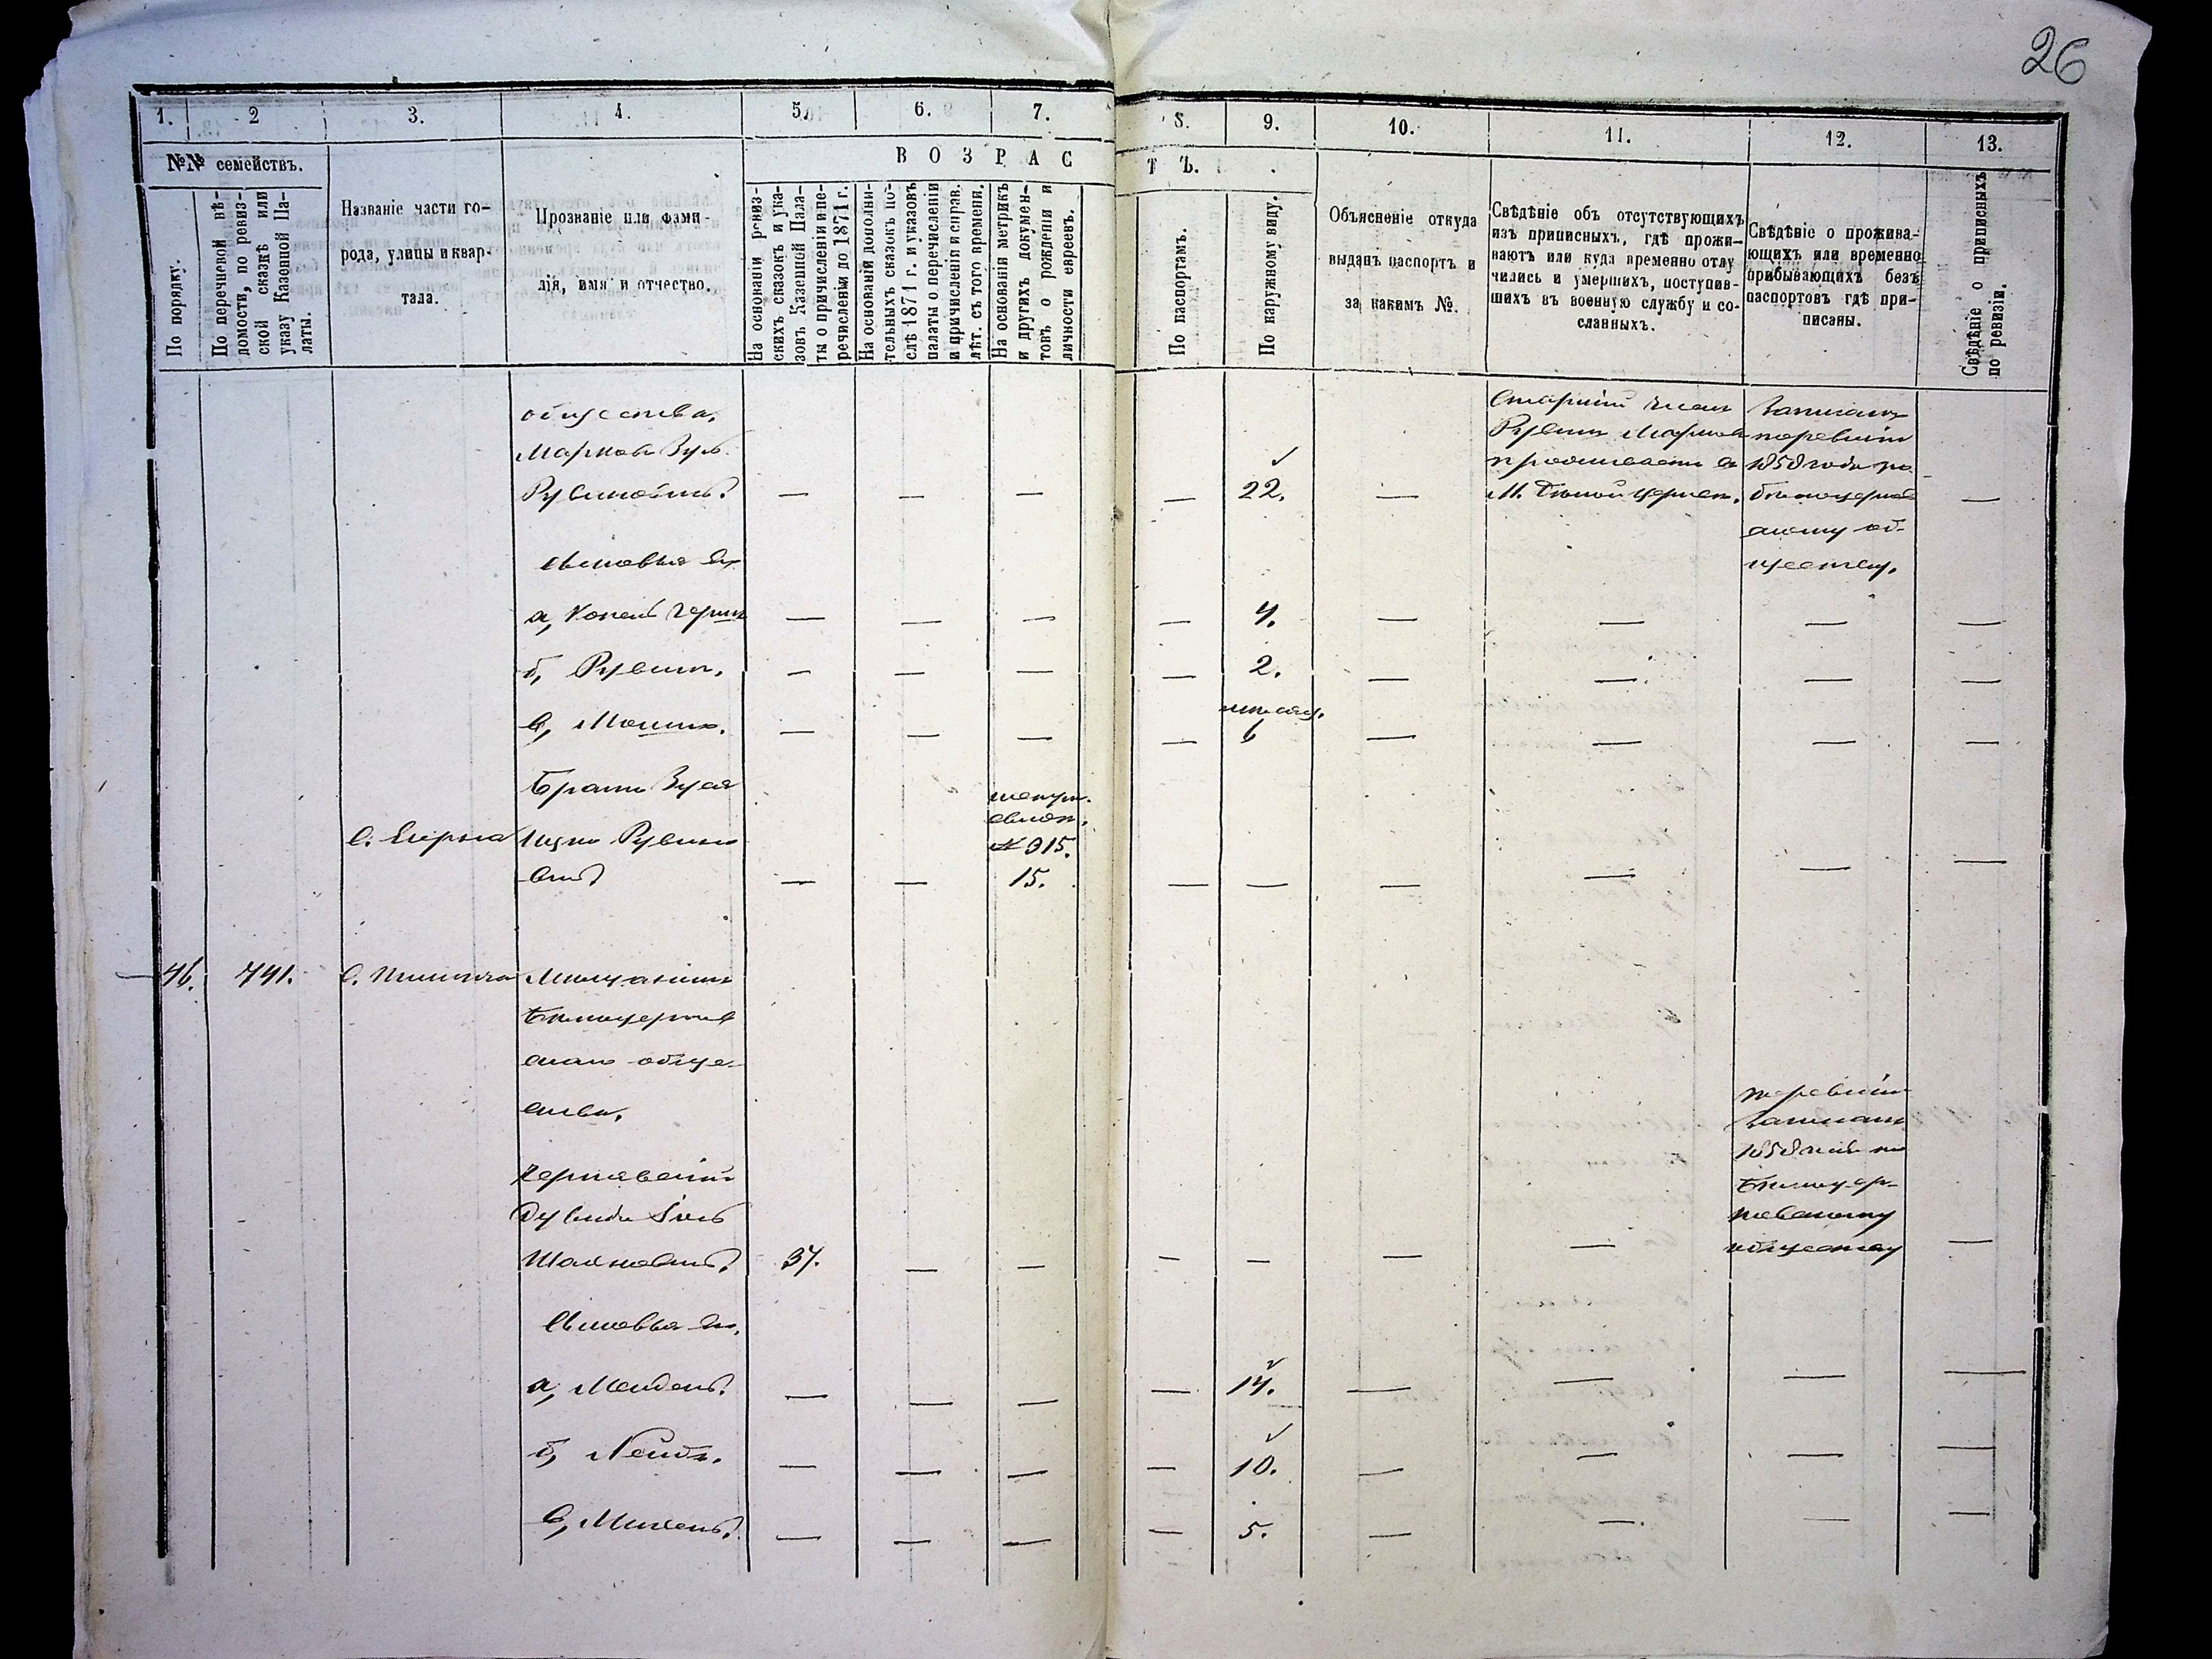 26
1. 2 3. 4. 5. 6. 7. 8. 9. 10. 11. 12. 13.
№№ семействъ.
В О З Р А С Т Ъ.
По порядку.
По перечневой вѣ-
домости, по ревиз-
ской сказкѣ или
указу Казенной Па-
латы.
Названіе части го-
рода, улицы и квар-
тала.
Прозваніе или фами-
лія, имя и отчество.
На основаніи ревиз-
скихъ сказокъ и ука-
зовъ Казенной Пала-
ты о причисленіи и пе-
речисленіи до 1871 г.
На основаніи дополни-
тельныхъ сказокъ по-
слѣ 1871 г. и указовъ
палаты о перечисленіи
и причисленіи и справ.
лѣт. съ того времени.
На основаніи метрикъ
и другихъ докумен-
товъ о рожденіи и
личности евреевъ.
По паспортамъ.
По наружному виду.
Объясненіе откуда
выданъ паспортъ и
за какимъ №.
Свѣдѣніе объ отсутствующихъ
изъ приписныхъ, гдѣ прожи-
ваютъ или куда временно отлу
чились и умершихъ, поступив-
шихъ въ военную службу и со-
сланныхъ.
Свѣдѣніе о прожива-
ющихъ или временно
прибывающихъ безъ
паспортовъ гдѣ при-
писаны.
Свѣдѣніе о приписныхъ
по ревизіи.
общества,
Марковъ Зусь
Рувиновичъ. — — — — 22. — —
Старшій членъ
Рувинъ Марковъ
проживаетъ въ
М. Бѣлой Церкви.
Записанъ
по ревизіи
1858 года по
Бѣлоцерков
скому об-
ществу.
Сыновья его
а, — — — — 4. — — — —
б, Рувинъ. — — — — 2. — — — —
в, Мошко. — — — — 6 — — — —
Братъ Зуся
Ицко Рувино
вичъ — — 15. — — — — — —
№ 915.
46. 741. Мѣщанинъ
Бѣлоцерков
скаго обще-
ства.
Чернявскій
Дувидъ Іось
37. — — — — — — —
по ревизіи
записанъ
1858 года по
Бѣлоцер-
ковскому
обществу
Сыновья его.
а, Мендель. — — — — 14. — — — —
б, Лейба. — — — — 10. — — — —
в, — — — — 5. — — — —